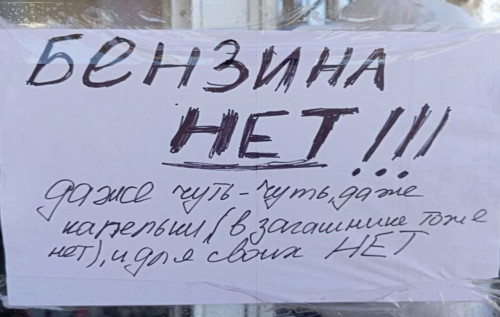 БЕНЗИНА
НЕТ!!!
даже чуть-чуть, даже
капельки, (в загашнике тоже
нет), и для своих НЕТ